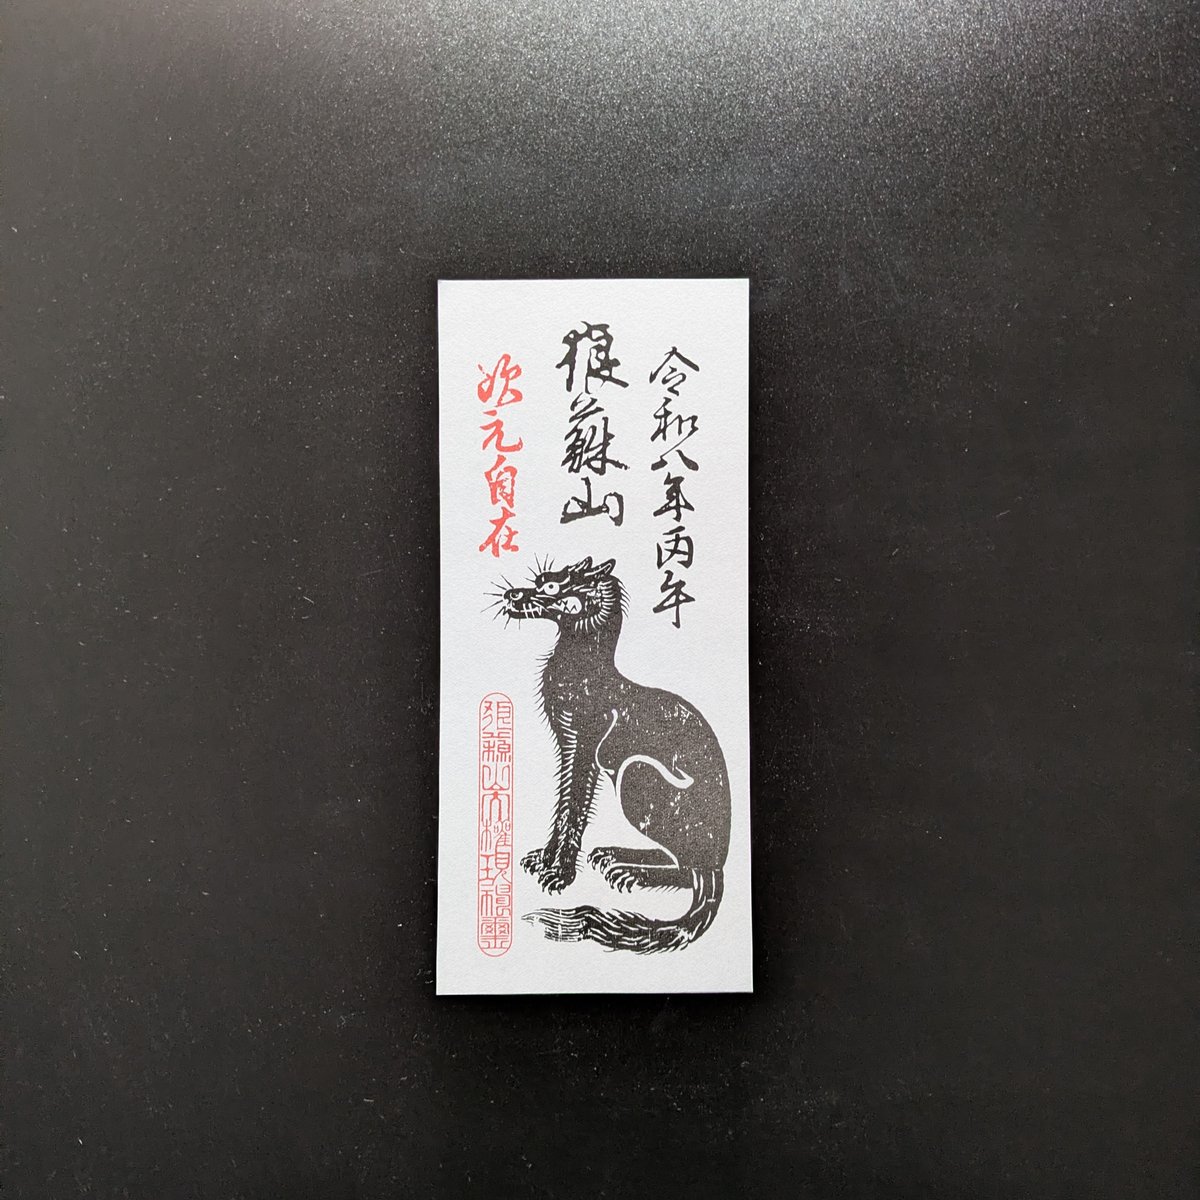 令和八年丙午
狼蘇山
次元自在
狼蘇山大權現璽